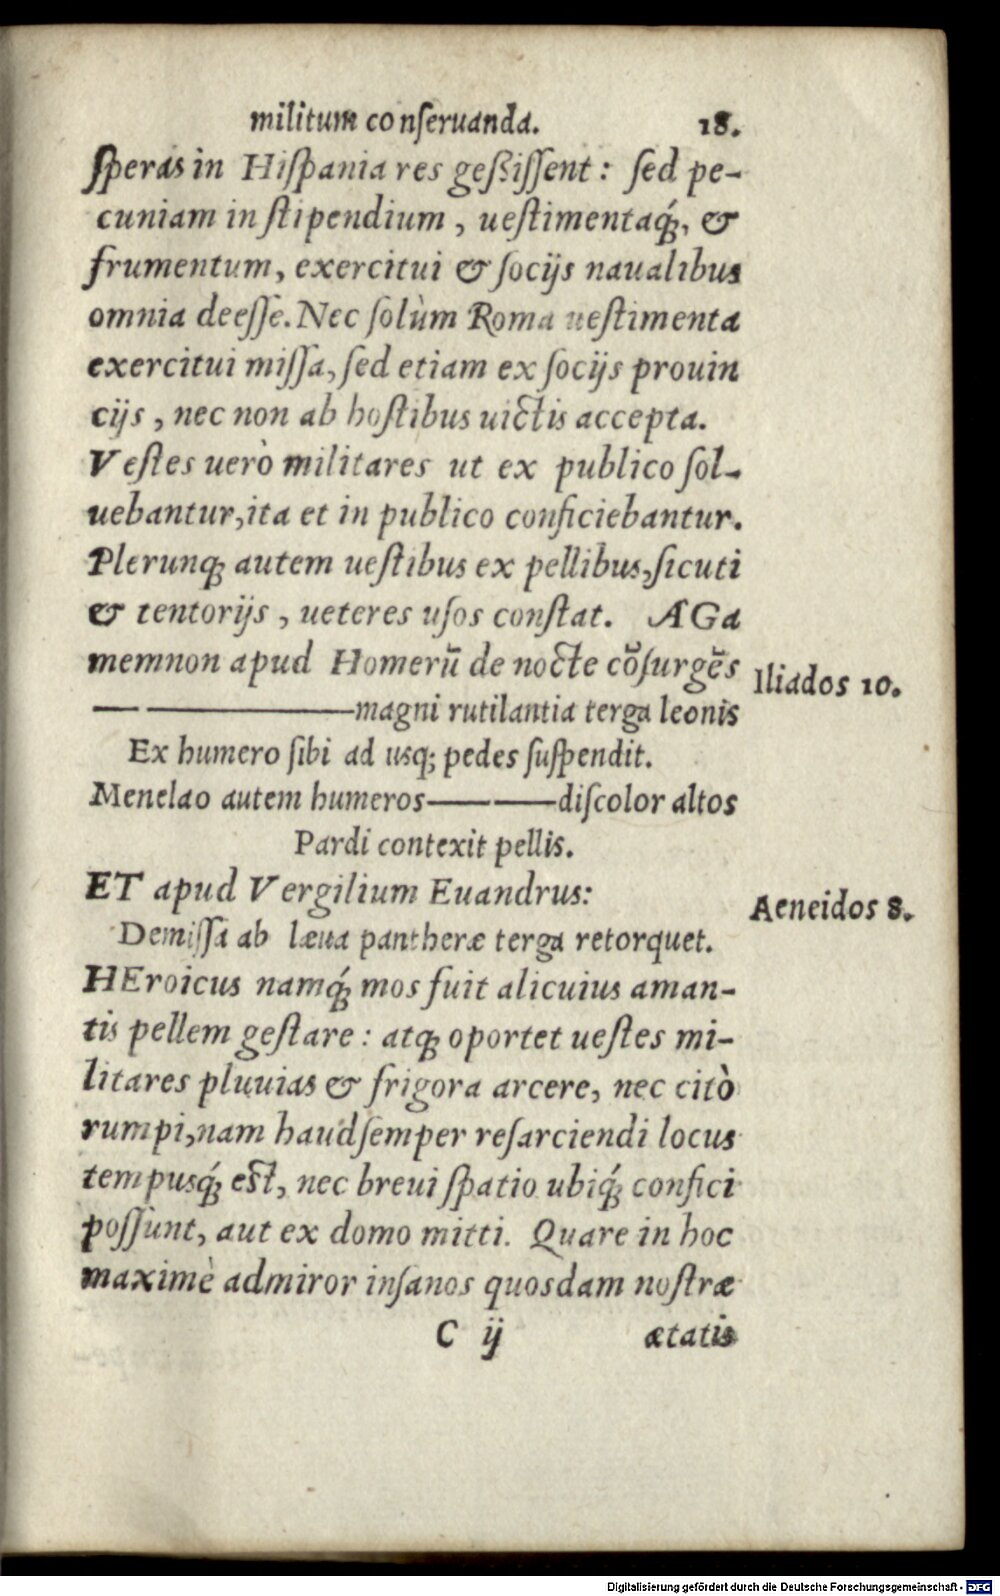 militum conſeruanda. 18.
ſperas in Hiſpania res geßiſſent: ſed pe-
cuniam in ſtipendium, ueſtimentaq́;, &
frumentum, exercitui & ſocijs naualibus
omnia deeſſe. Nec ſolùm Roma ueſtimenta
exercitui miſſa, ſed etiam ex ſocijs prouin
cijs, nec non ab hoſtibus uictis accepta.
Veſtes uerò militares ut ex publico ſol-
uebantur, ita et in publico conficiebantur.
Plerunq; autem ueſtibus ex pellibus, ſicuti
& tentorijs, ueteres uſos conſtat. AGa
memnon apud Homerū de nocte cōſurgēs
Iliados 10.
— ———magni rutilantia terga leonis
Ex humero ſibi ad usq; pedes ſuſpendit.
Menelao autem humeros—— ——diſcolor altos
Pardi contexit pellis.
ET apud Vergilium Euandrus:
Aeneidos 8.
Demiſſa ab læua pantheræ terga retorquet.
HEroicus namq́; mos fuit alicuius aman-
tis pellem geſtare: atq; oportet ueſtes mi-
litares pluuias & frigora arcere, nec citò
rumpi, nam haud ſemper reſarciendi locus
tempusq́; eſt, nec breui ſpatio ubiq́; confici
poſſunt, aut ex domo mitti. Quare in hoc
maximè admiror inſanos quosdam noſtræ
C ij ætatis
Digitalisierung gefördert durch die Deutsche Forschungsgemeinschaft - DFG